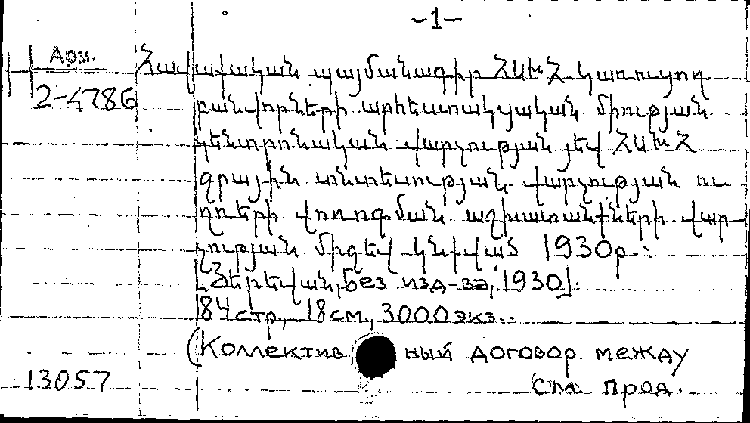 -1-
Арм.
2-4786
Հավաքական պայմանագիր ՀԱԽՀ կառուցող
բանվորների արհեստակցական միության
կենտրոնական վարչության յեվ ՀԱԽՀ
ջրային տնտեսության վարչության ու
վոռոգման աշխատանքների վար-
չության միջեվ կնքված 1930թ.:
[Յերեվան, без изд-ва, 1930].
84 стр., 18 см., 3000 экз.
(Коллективный договор между
13057
См. прод.